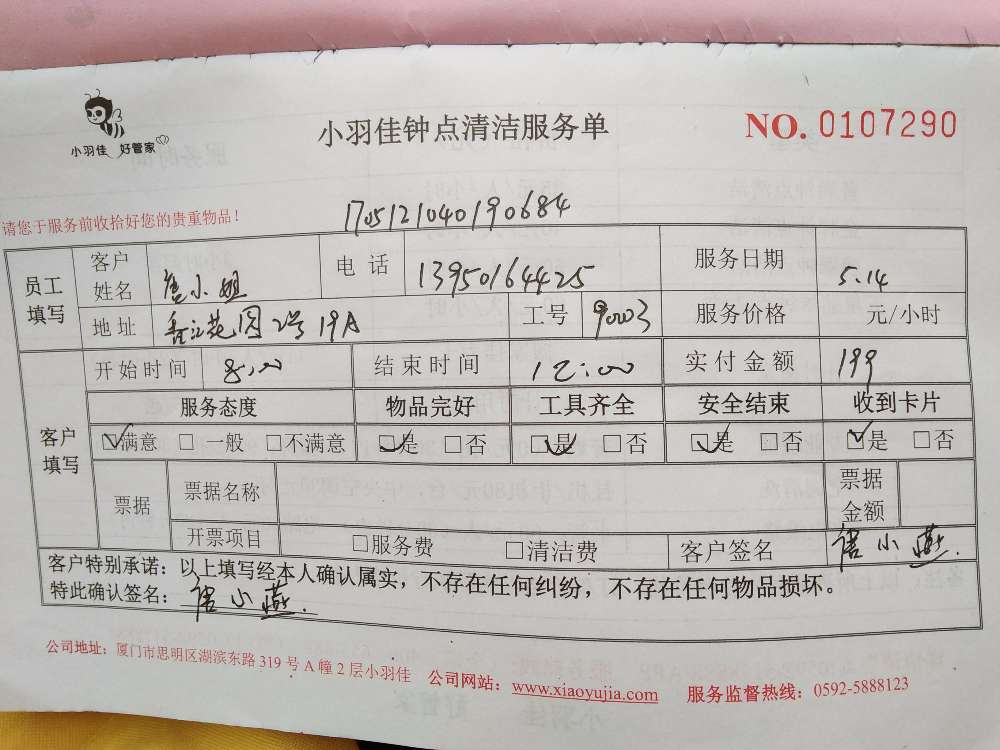 小羽佳 好管家
小羽佳钟点清洁服务单
NO. 0107290
请您于服务前收拾好您的贵重物品！
1705121040190684
员工填写 客户姓名 唐小姐 电话 13950164425 服务日期 5.14
地址 香江花园2号19A 工号 90003 服务价格 元/小时
客户填写 开始时间 8:00 结束时间 12:00 实付金额 199
服务态度 物品完好 工具齐全 安全结束 收到卡片
☑满意 □一般 □不满意 ☑是 □否 ☑是 □否 ☑是 □否 ☑是 □否
票据 票据名称 票据金额
开票项目 □服务费 □清洁费 客户签名 唐小燕.
客户特别承诺：以上填写经本人确认属实，不存在任何纠纷，不存在任何物品损坏。
特此确认签名：唐小燕.
公司地址：厦门市思明区湖滨东路 319 号 A 幢 2 层小羽佳 公司网站：www.xiaoyujia.com 服务监督热线：0592-5888123